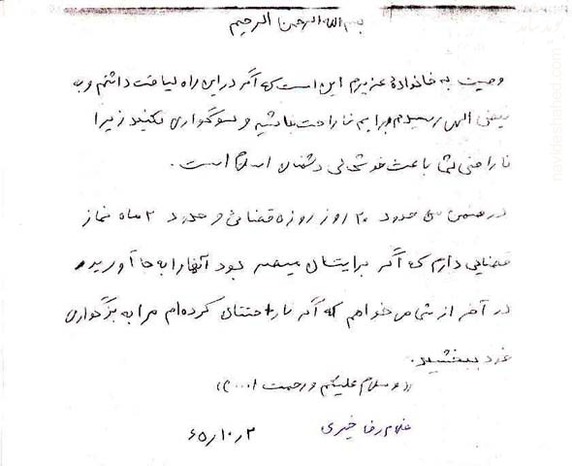 بسم الله الرحمن الرحیم
وصیت به خانواده عزیزم این است که اگر در این راه لیاقت داشتم و به
فیض الهی رسیدم برایم ناراحت نباشید و سوگواری نکنید زیرا
ناراحتی شما باعث خوشحالی دشمنان اسلام است.
در ضمن من حدود ۲۰ روز روزه قضائی و حدود ۲ ماه نماز
قضایی دارم که اگر برایتان میسر بود آنها را به جا آورید و
در آخر از شما می خواهم که اگر ناراحتتان کرده‌ام مرا به بزگواری
خود ببخشید.
((و سلام علیکم و رحمت ا...))
غلامرضا خیری
۶۵/۱۰/۲